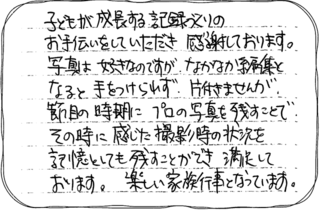 子どもが成長する記録づくりの
お手伝いをしていただき 感謝しております。
写真は 好きなのですが、なかなか編集と
なると 手をつけられず、片付きませんが、
節目の時期に プロの写真を残すことで
その時に 感じた 撮影時の状況を
記憶としても 残すことができ 満足して
おります。 楽しい 家族行事となっています。